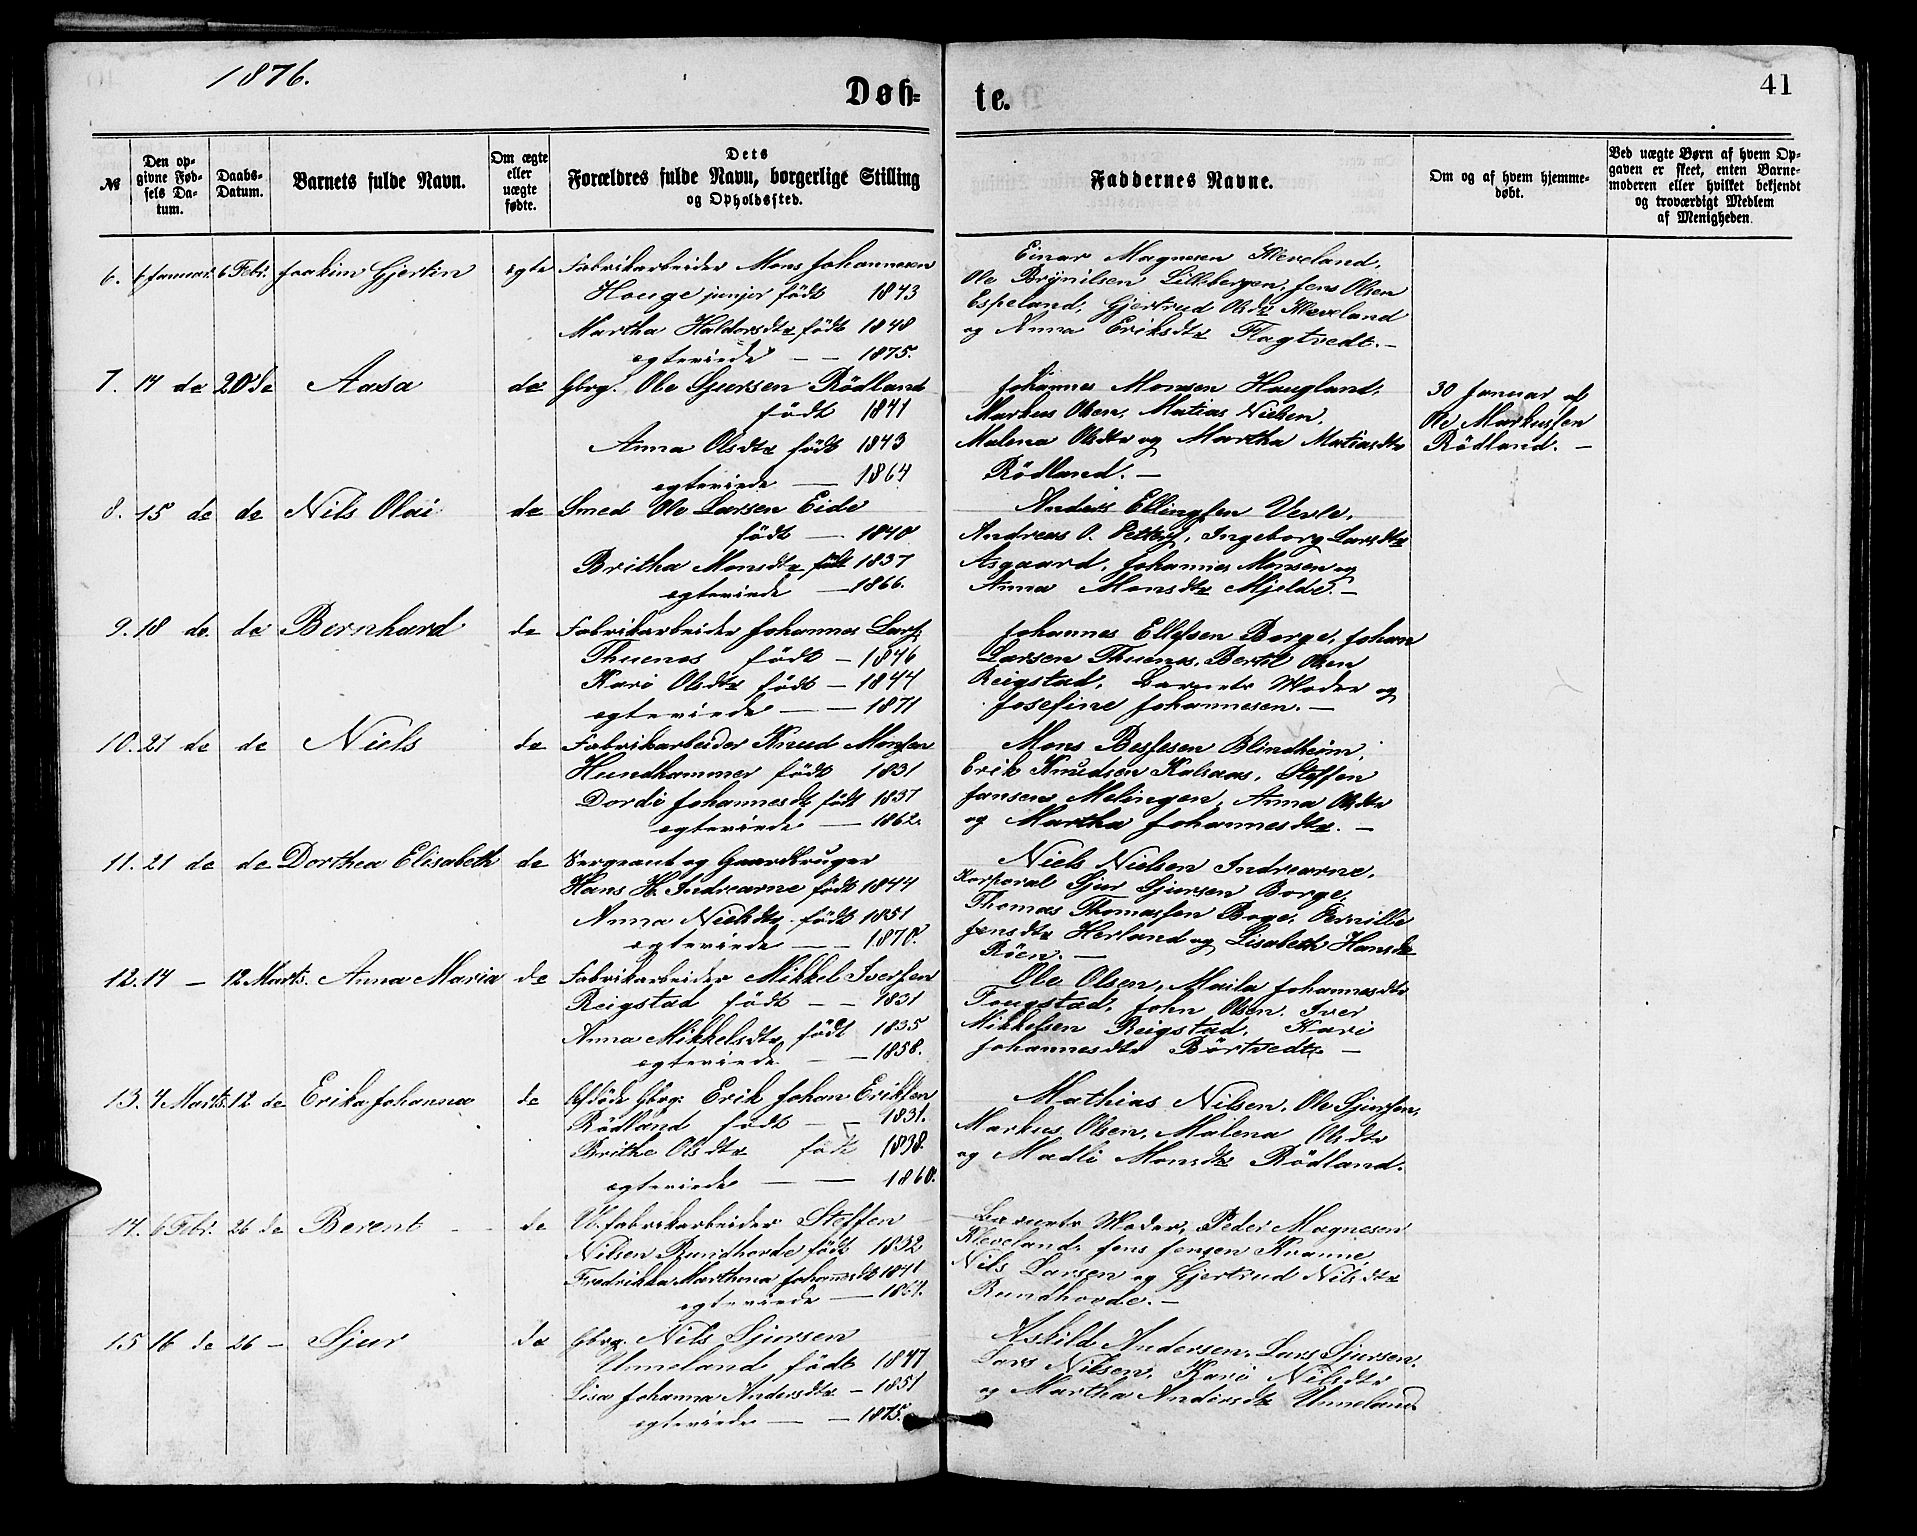 1876.
Døb-
te.
41
№
Den op-
givne Fød-
sels Da-
tum.
Daabs-
Datum.
Barnets fulde Navn.
Om ægte
eller
uægte
fødte.
Dets
Forældres fulde Navn, borgerlige Stilling
og Opholdssted.
Faddernes Navne.
Om og af hvem hjemme-
døbt.
Ved uægte Børn af hvem Op-
gaven er skeet, enten Barne-
moderen eller hvilket bekjendt
og troværdigt Medlem
af Menigheden.
6. 6 Januar 6 Febr. Joakim Gjertin ægte Fabrikarbeider Mons Johannesen
Houge junjor født 1843
Martha Haldorsdtr født 1848
egteviede — — 1875.
Einar Magnesen Kleveland,
Ole Brynilsen Lillebergen, Jens Olsen
Espeland, Gjertrud Olsdtr Kleveland
og Anna Eriksdtr Flagtvedt. —
7. 14 de 20 de Aasa de Gbrg. Ole Sjursen Rödland
født 1841
Anna Olsdtr født 1843
egteviede — 1864
Johannes Monsen Haugland,
Markus Olsen, Matias Nielsen,
Malena Olsdtr og Martha Matiasdtr
Rödland. —
30 Januar af
Ole Markussen
Rödland. —
8. 15 de de Nils Olai de Smed Ole Larsen Eide
født — 1840
Britha Monsdtr født 1837
egteviede — 1866.
Anders Ellingsen Verle,
Andreas O. Ingeborg Larsdtr
Asgaard, Johannes Monsen og
Anna Monsdtr Mjelde. —
9. 18 de. de Bernhard de Fabrikarbeider Johannes Lars.
Thuenes født — 1846
Kari Olsdtr født — 1844
egteviede — — 1871
Johannes Ellefsen Borge, Johan
Larsen Thuenes, Bertil Olsen
Reigstad, Barnets Moder og
Josefine Johannesen. —
10. 21 de de Niels de Fabrikarbeider Knud Monsen
Hundhammer født 1831
Dordi Johannesdt født 1837
egteviede — 1862.
Mons Besfesen Blindheim,
Erik Knudsen Kalsaas, Steffen
Jansens Melingen, Anna Olsdtr
og Martha Johannesdtr. —
11. 21 de de Dorthea Elisabeth de Sergeant og Gaardbruger
Hans H. Indrearne født 1844
Anna Nielsdtr født 1851
egteviede — — 1870.
Niels Nielsen Indrearne,
Korporal Sjur Sjursen Borge,
Thomas Thomassen Boge, Pernille
Jensdtr Herland og Lisabeth Hansdtr
Röen. —
12. 14 — 12 Marts. Anna Maria de Fabrikarbeider Mikkel Iversen
Reigstad født — — 1831
Anna Mikkelsdtr født 1835
egteviede — — 1858.
Ole Olsen, Maila Johannesdtr
Tougstad, John Olsen, Iver
Mikkelsen Reigstad, Kari
Johannesdtr Börtvedt. —
13. 4 Marts. 12 de Erika Johanna de Afdöde Gbrg. Erik Johan Eriksen
Rödland født — — 1831.
Brithe Olsdtr født 1838.
egteviede — — 1860.
Mathias Nilsen, Ole Sjursen,
Markus Olsen, Malena Olsdtr
og Madli Monsdtr Rödland.
14. 6 Febr. 26 de Berent — de Fabrikarbeider Steffen
Nilsen Rundhovde født 1832
Fredrikka Marthena Johansdtr 1841
egteviede — 1861.
Barnets Moder, Peder Magnesen
Kleveland, Jens Jensen Kvamne,
Nils Larsen og Gjertrud Nilsdtr
Rundhovde. —
15 16 de 26 — Sjur de Gbrg. Nils Sjursen
Unneland født 1847
Lisa Johanna Andersdtr — 1851
egteviede — — 1875.
Askild Andersen, Lars Sjursen,
Lars Nilsen, Kari Nilsdtr
og Martha Andersdtr Unneland